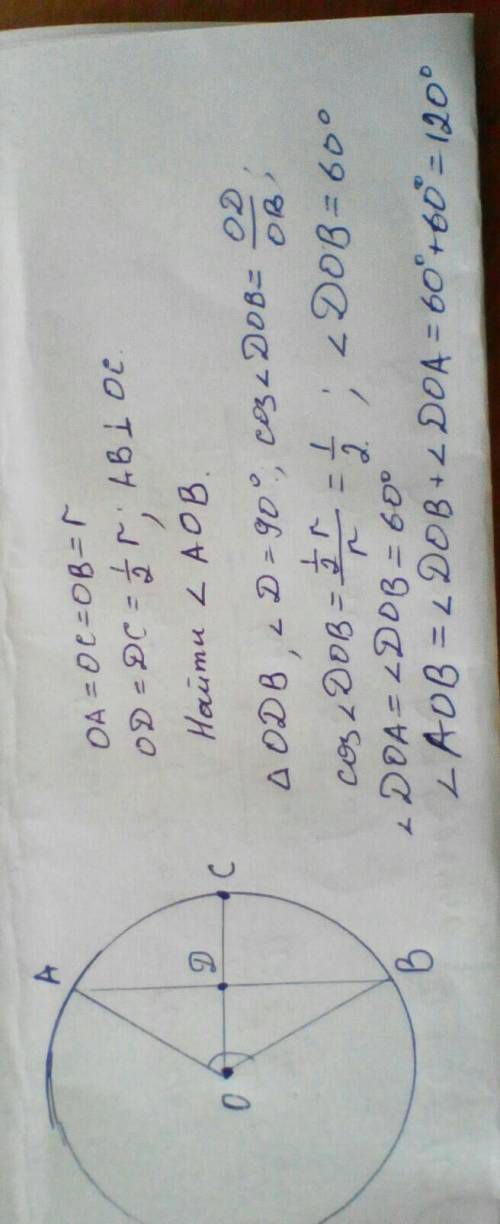 OA = OC = OB = r
OD = DC = 1/2 r; AB ⊥ OC.
Найти ∠ AOB.
△ ODB, ∠ D = 90°, cos∠DOB = OD/OB;
cos∠DOB = (1/2 r)/r = 1/2; ∠DOB = 60°
∠DOA = ∠DOB = 60°
∠AOB = ∠DOB + ∠DOA = 60° + 60° = 120°
A
D
C
O
B